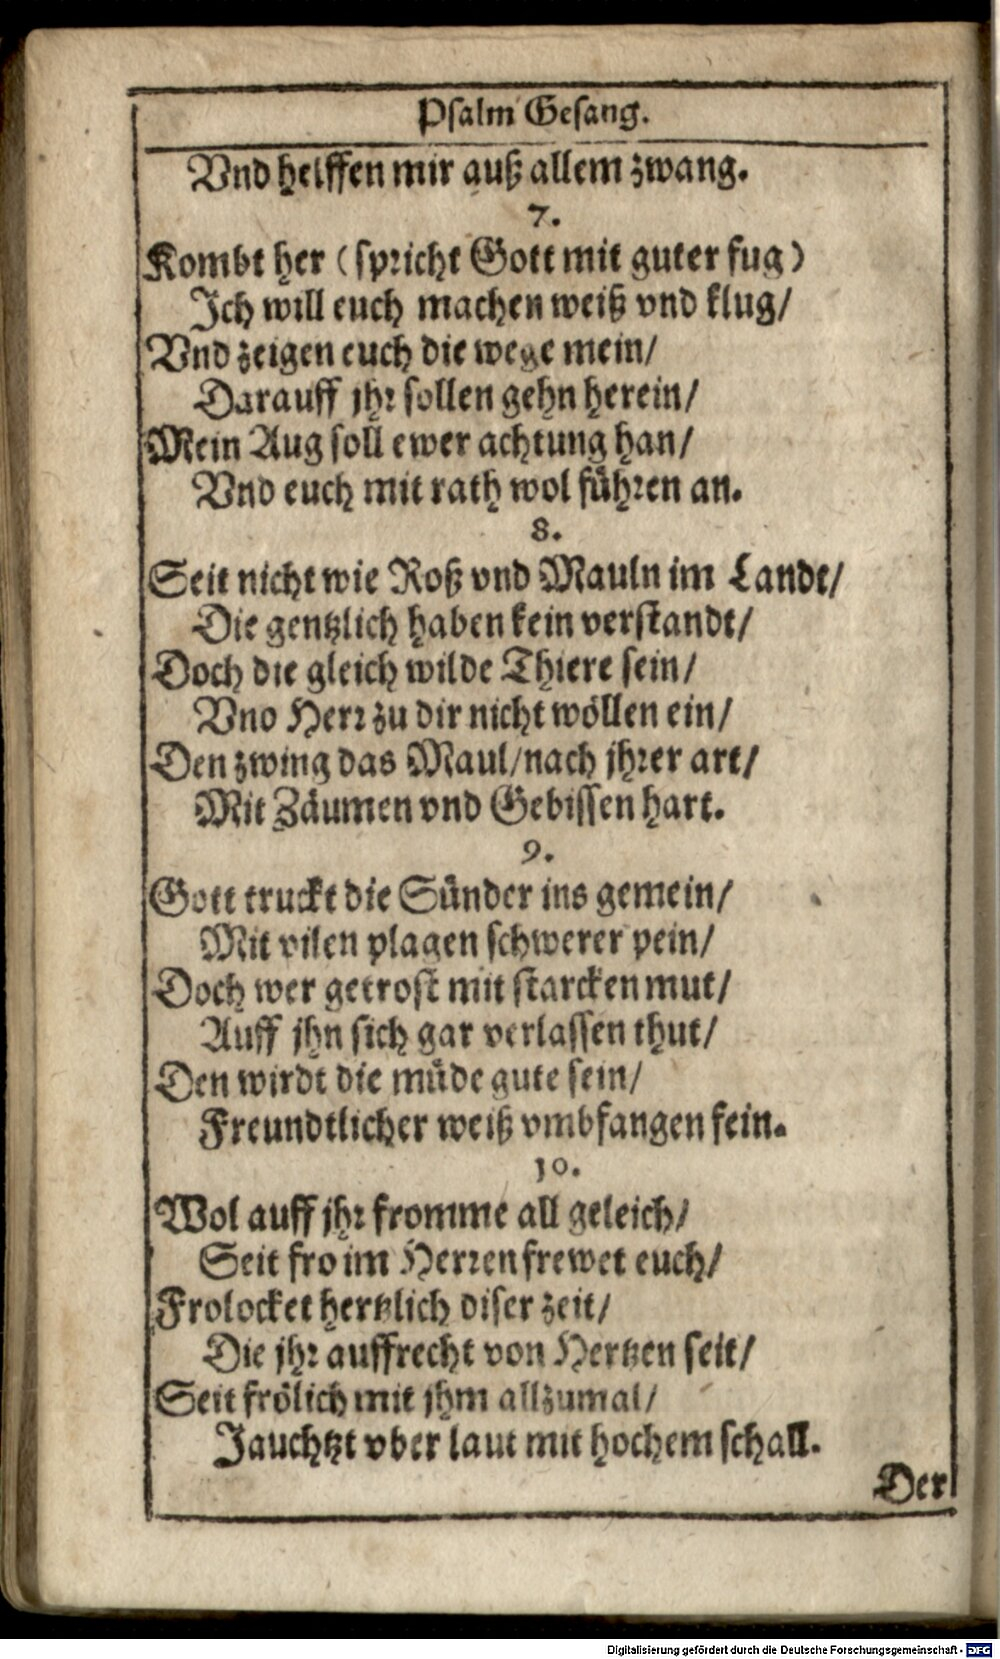 Psalm Gesang.
Vnd helffen mir auß allem zwang.
7.
Kombt her (spricht Gott mit guter fug)
Ich will euch machen weiß vnd klug/
Vnd zeigen euch die wege mein/
Darauff jhr sollen gehn herein/
Mein Aug soll ewer achtung han/
Vnd euch mit rath wol führen an.
8.
Seit nicht wie Roß vnd Mauln im Landt/
Die gentzlich haben kein verstandt/
Doch die gleich wilde Thiere sein/
Vno Herr zu dir nicht wöllen ein/
Den zwing das Maul/nach jhrer art/
Mit Zäumen vnd Gebissen hart.
9.
Gott truckt die Sünder ins gemein/
Mit vilen plagen schwerer pein/
Doch wer getrost mit starcken mut/
Auff jhn sich gar verlassen thut/
Den wirdt die müde gute sein/
Freundtlicher weiß vmbfangen fein.
10.
Wol auff jhr fromme all geleich/
Seit fro im Herren frewet euch/
Frolocket hertzlich diser zeit/
Die jhr auffrecht von Hertzen seit/
Seit frölich mit jhm allzumal/
Jauchtzt vber laut mit hochem schall.
Der
Digitalisierung gefördert durch die Deutsche Forschungsgemeinschaft - DFG